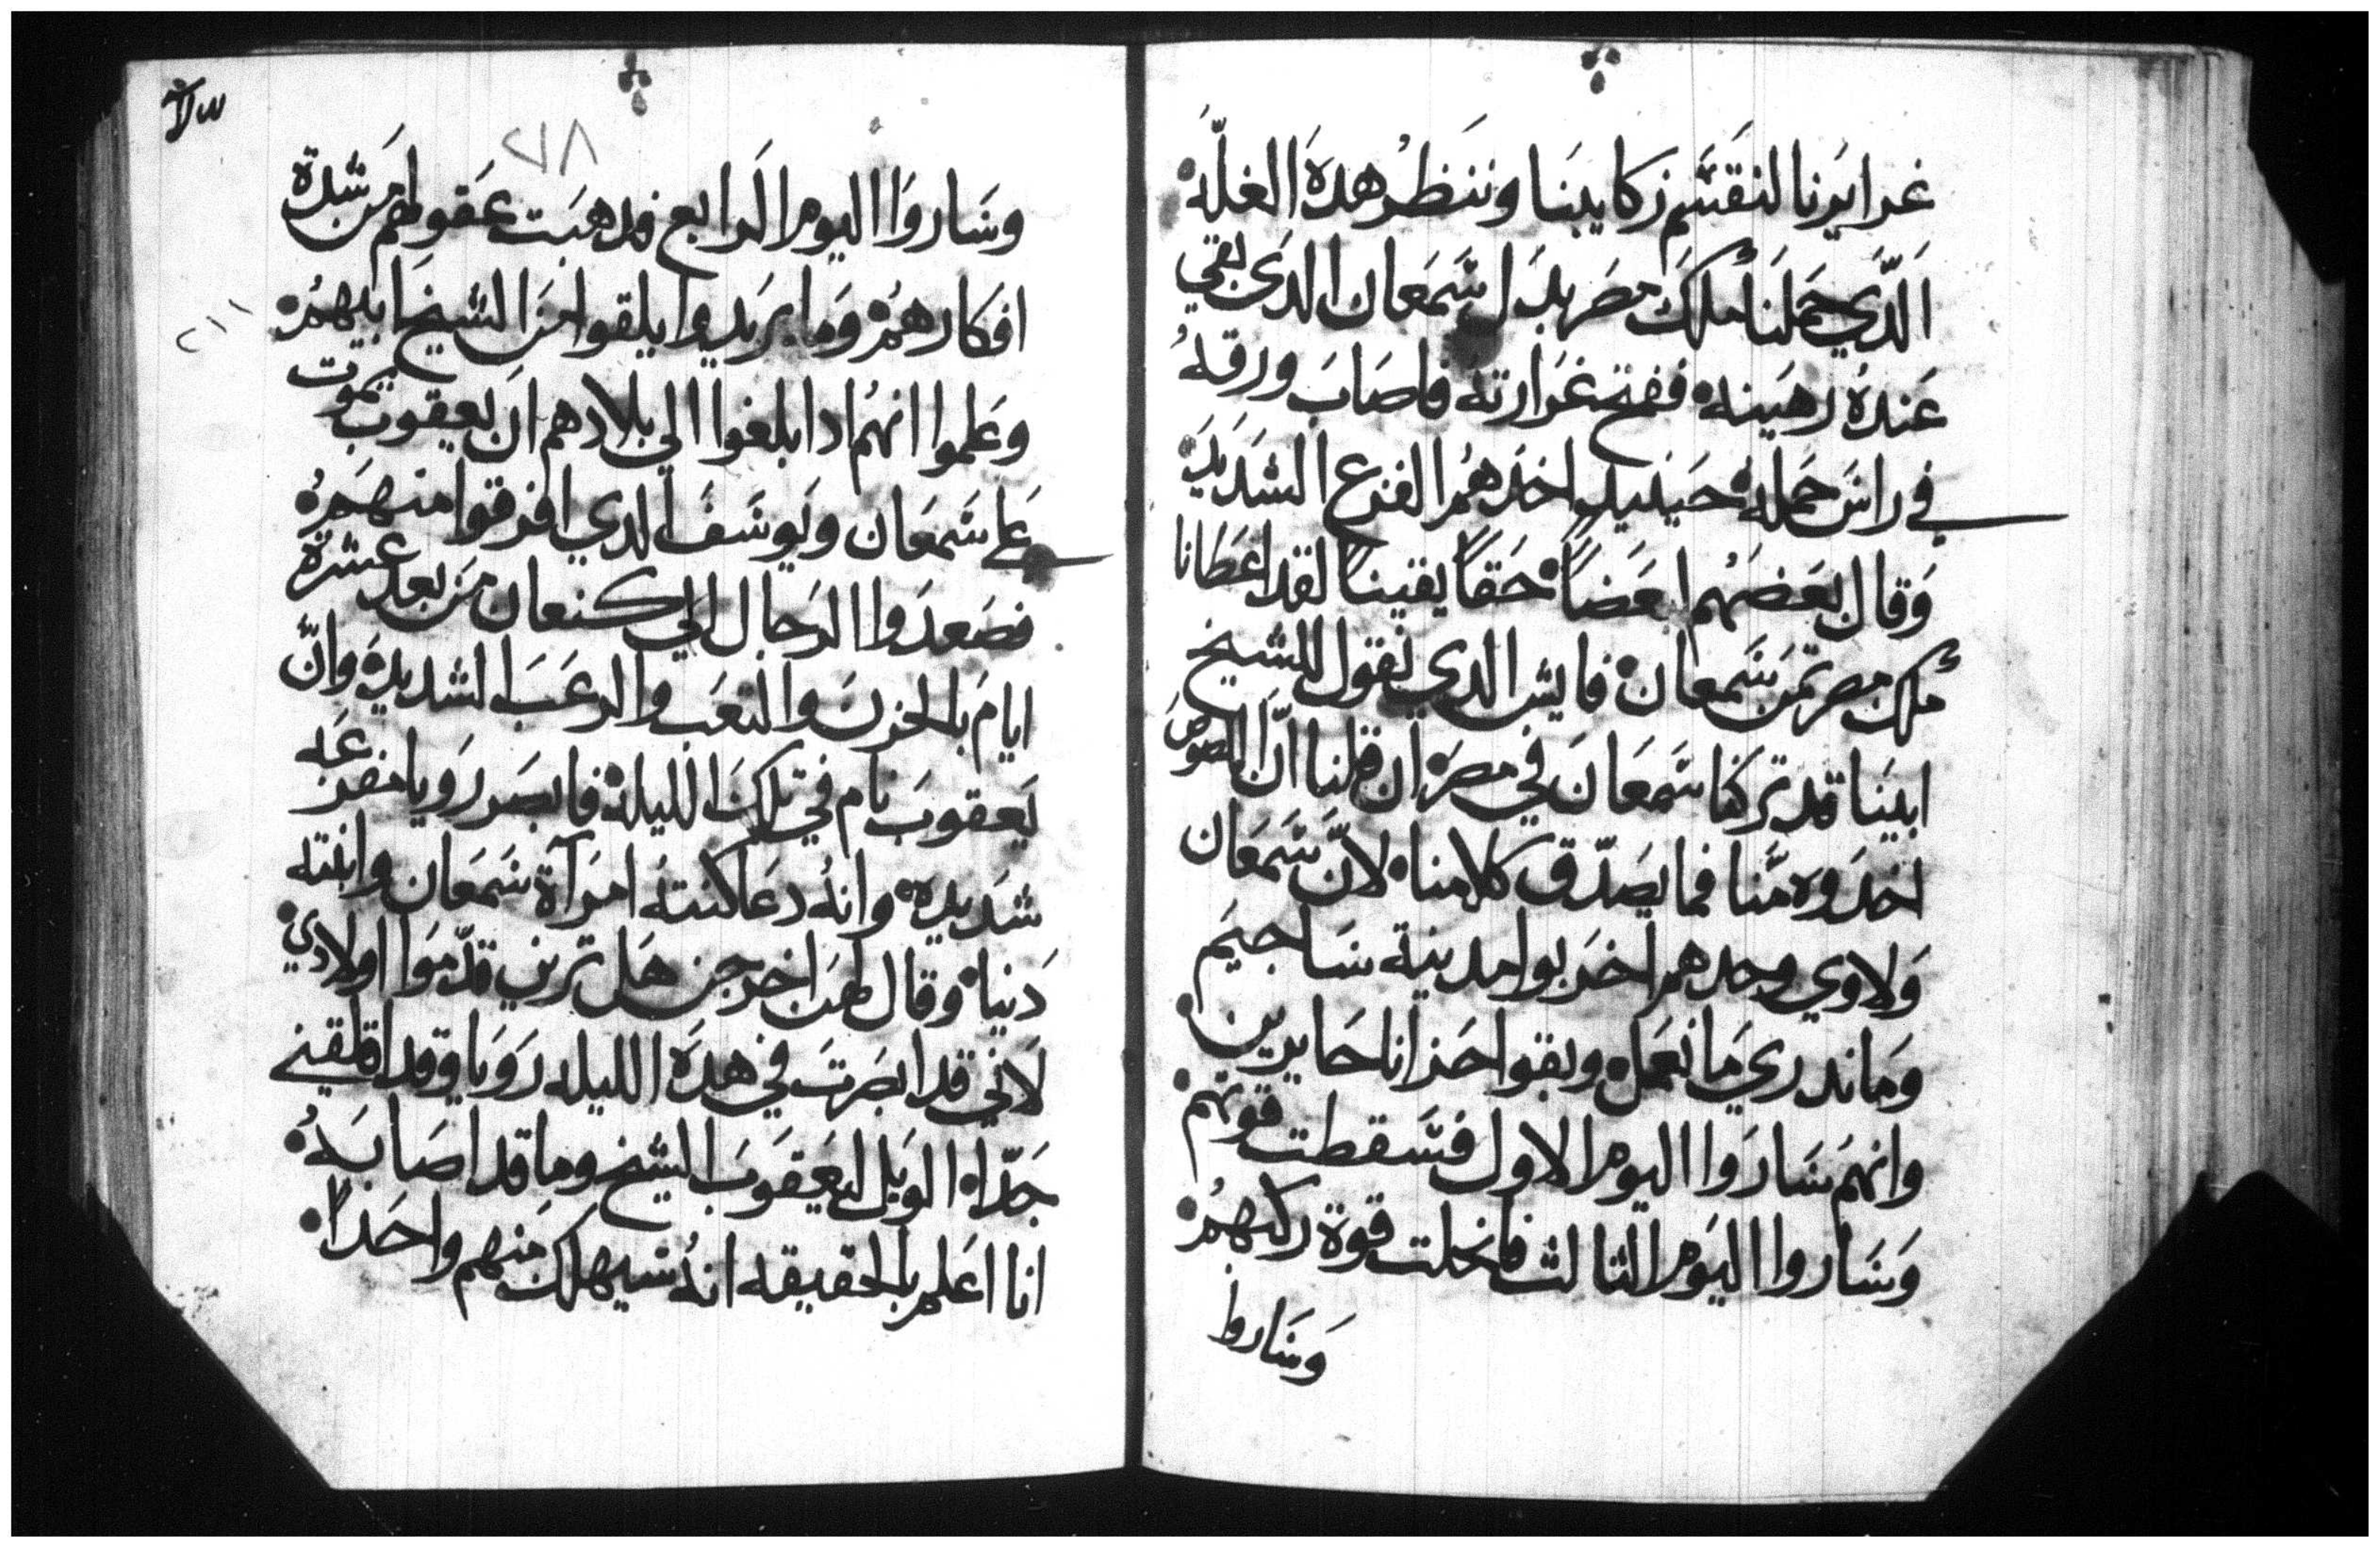 غرايرنا لنقسم زكايبنا وننظر هده الغلّه
الدّي حملنا ملك مصر بدل شمعان الدي بقي
عنده رهينه ففتح غرارته فاصاب ورقه
في راس حمله حينيد اخدهم الفزع الشديد
وقال بعضهم بعضاً حقاً يقيناً لقد اعطانا
ملك مصر تمن شمعان فايش الدي نقول للشيخ
ابينا قد تركنا شمعان في مصر ان قلنا انّ اللصوص
اخدوه منّا فما يصدّق كلامنا لانّ شمعان
ولاوي وحدهم اخربوا مدينة ساجيم
وما ندري ما نعمل وبقوا حزانا حايرين
وانهم ساروا اليوم الاول فسقطت قوتهم
وساروا اليوم الثالث فانحلت قوة ركبهم
وساروا
٧٣
٢١٨
وساروا اليوم الرابع فدهبت عقولهم من شدة
افكارهم وما يريدوا يلقوا من الشيخ ابيهم
٢١١
وعلموا انهم ادا بلغوا الي بلادهم ان يعقوب يموت
علي شمعان ويوسف الدي افرقوا منهم
فصعدوا الرجال الي كنعان من بعد عشرة
ايام بالحزن والتعب والرعب الشديد وانّ
يعقوب نام في تلك الليله فابصر رويا مفزعه
شديده وانه دعا كنته امرآة شمعان وابنته
دنيا وقال لهن اخرجن هل ترين قدّموا اولادي
لاني قد ابصرت في هده الليله رويا وقد اقلقني
جدّا الويل ليعقوب الشيخ وما قد اصابه
انا اعلم بالحقيقه انه سيهلك منهم واحداً